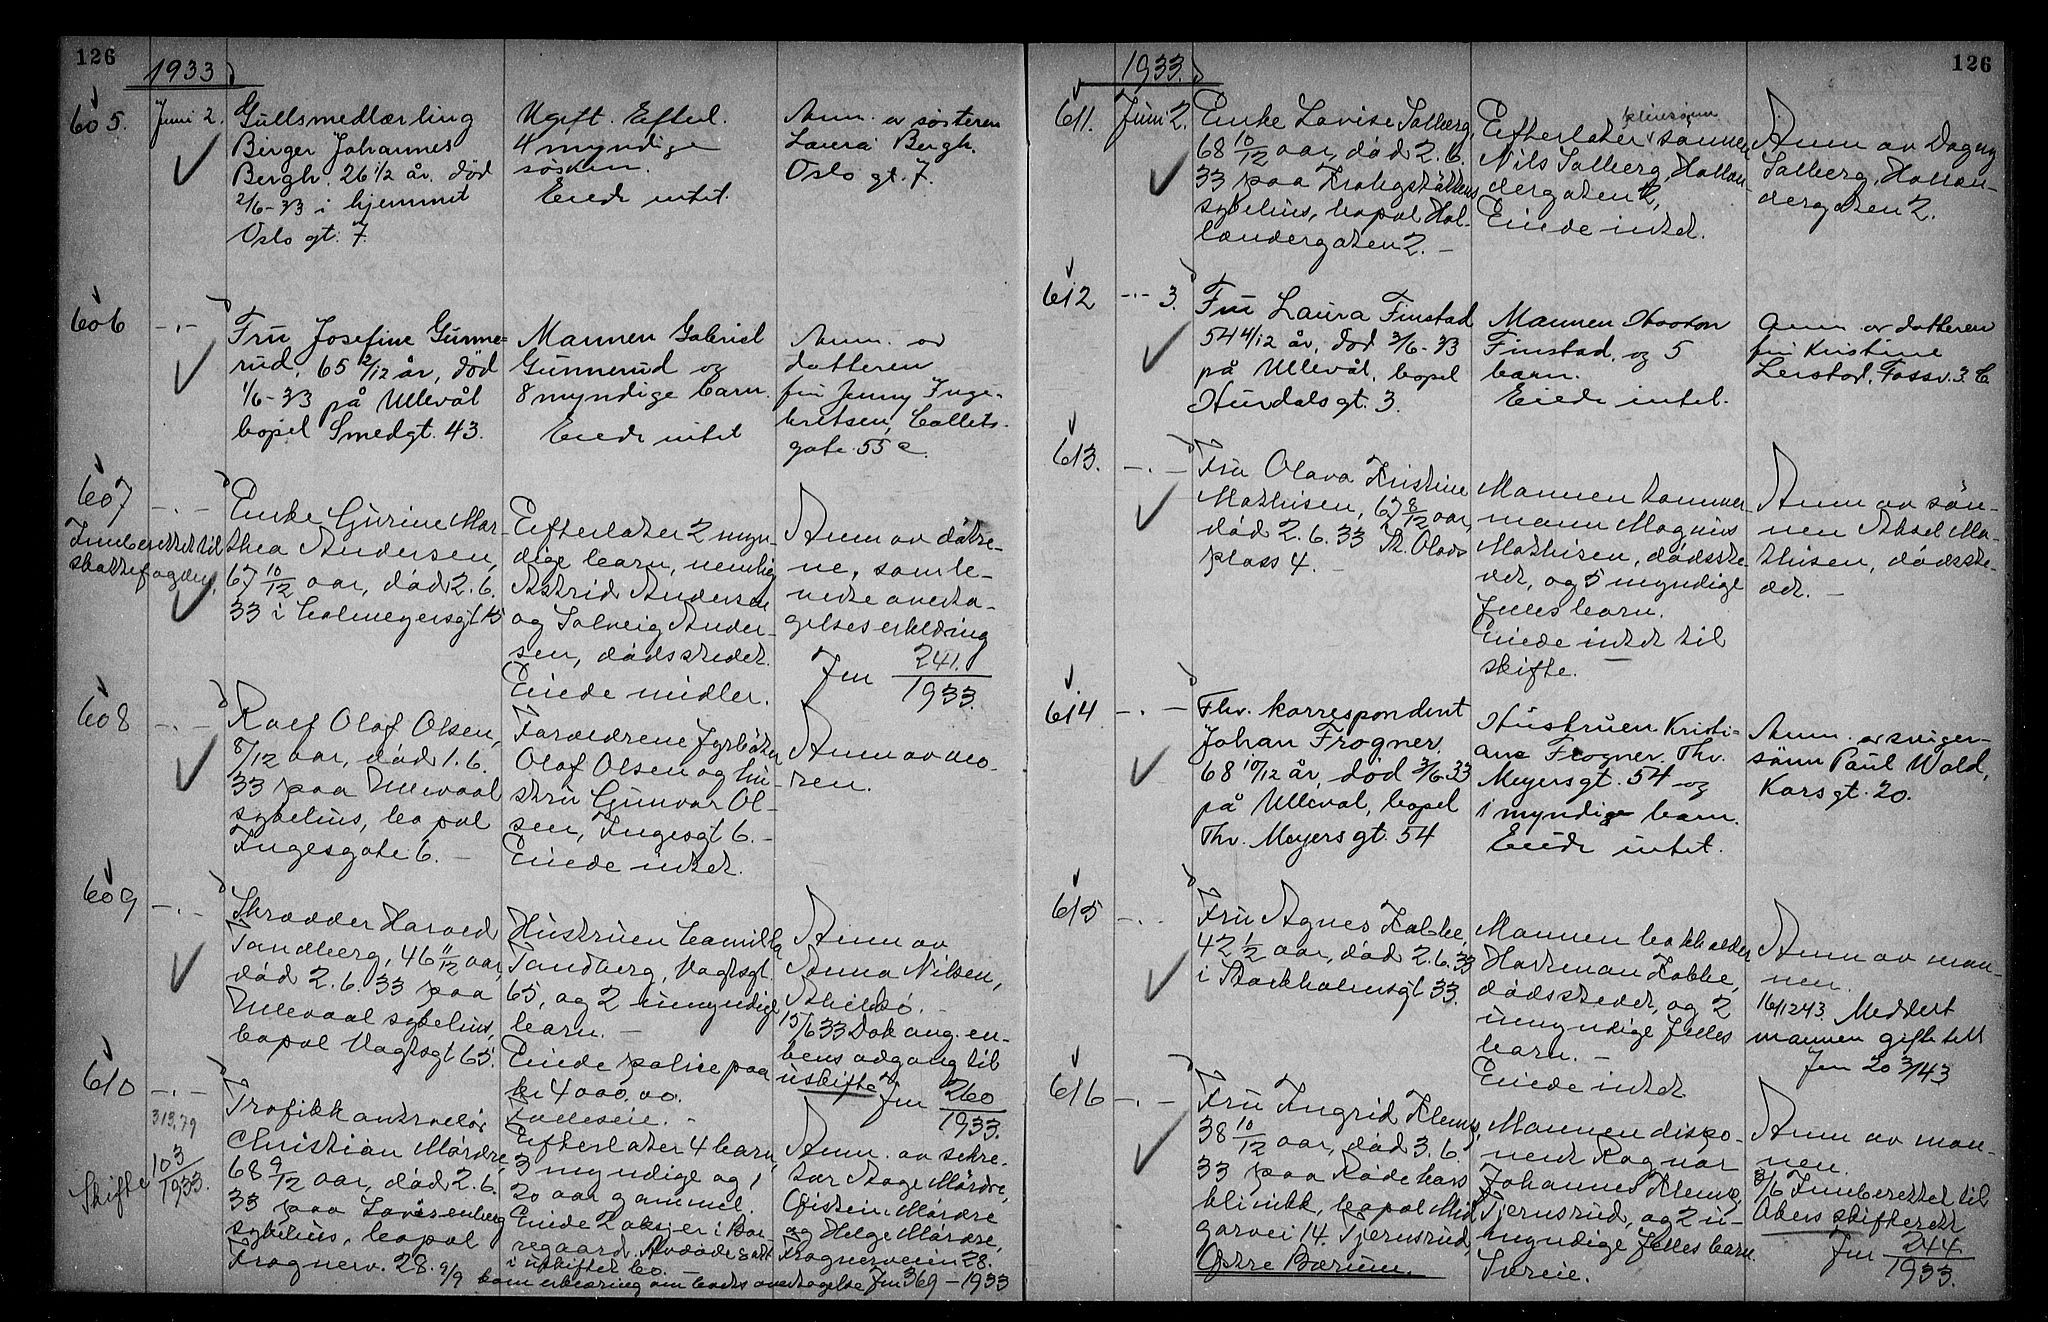 126
1933
605.
Juni 2.
Gullsmedlærling
Birger Johannes
Bergh. 26 1/2 år. død
2/6-33 i hjemmet
Oslo gt. 7.
Ugift. Efterl.
4 myndige
søsken.
Eiede intet.
Anm. av søsteren
Laura Bergh.
Oslo gt. 7.
606
-"-
Fru Josefine Gunne-
rud, 65 2/12 år, død
1/6-33 på Ullevål
bopel Smedgt. 43.
Mannen Gabriel
Gunnerud og
8 myndige barn.
Eiede intet
Anm. av
datteren
fru Jenny Inge-
bretsen, Collets-
gate 55 c.
607
Innberettet til
skattefogden,
-"-
Enke Gurine Mar-
thea Andersen,
67 10/12 aar, død 2.6.
33 i Colmeyersgt 15
Efterlater 2 myn-
dige barn, nemlig
Astrid Andersen
og Solveig Ander-
sen, dødsstedet.
Eiede midler.
Anm av døtre-
ne, som le-
verte overta-
gelseserklæring
Jnr 241./1933.
608
-"-
Rolf Olaf Olsen,
8/12 aar, død 1.6.
33 paa Ullevaal
sykehus, bopel
Ingesgate 6. -
Forældrene fyrbøter
Olaf Olsen og hu-
stru Gunvor Ol-
sen, Ingesgt 6. -
Eiede intet.
Anm av mo-
ren.
609
-"-
Skrædder Harald
Tandberg, 46 11/12 aar,
død 2.6.33 paa
Ullevaal sykehus,
bopel Vogtsgt 65.
Hustruen Camilla
Tandberg, Vogtsgt
65, og 2 umyndige
barn. -
Eiede police paa
kr 4000,00.
Felleseie. -
Anm av
Anna Nilsen,
15/6 33 Dok ang. en-
kens adgang til
uskifte Jnr 260/1933.
610
-"-
313.79
Skifte 103/1933.
Trafikkontrollør
Christian Mørdre,
68 9/12 aar, død 2.6.
33 paa Lovisenberg
sykehus, bopel
Frognerv. 28.
Efterlater 4 barn,
3 myndige og 1
20 aar gammel.
Eiede 2 aksjer i Bor-
regaard. Avdøde satt
i uskiftet bo.
Anm. av sekre-
tær Aage Mørdre,
Øistein Mørdre
og Helge Mørdre,
Frognerveien 28.
9/9 kom erklæring om boets overtagelse Jnr 369-1933
1933.
126
611.
Juni 2.
Enke Lovise Solberg,
68 10/12 aar, død 2.6.
33 paa Krohgstøttens
sykehus, bopel Hol-
lændergaten 2. -
Efterlater sønnen
Nils Solberg, Hollen-
dergaten 2,
Eiede intet.
Anm av Dagny
Solberg, Hollen-
dergaten 2.
612
-"- 3.
Fru Laura Finstad
54 4/12 år, død 3/6-33
på Ullevål, bopel
Hurdalsgt. 3.
Mannen Haakon
Finstad, og 5
barn.
Eiede intet.
Anm av datteren
fru Kristine
Leistad, Fossv. 3 b
613.
-"-
Fru Olava Kristine
Mathisen, 67 8/12 aar,
død 2.6.33 St. Olavs
plass 4. -
Mannen tømmer
mann Magnus
Mathisen, dødsste-
det, og 5 myndige
felles barn.
Eiede intet til
skifte. -
Anm av søn-
nen Aksel Ma-
thisen, dødsste-
det. -
614
-"-
Fhv. korrespondent
Johan Frogner.
68 10/12 år, død 3/6 33
på Ullevål, bopel
Thv. Meyersgt. 54
Hustruen Kristi-
ane Frogner. Thv.
Meyersgt. 54 og
1 myndig barn.
Eiede intet.
Anm. av sviger-
sønn Paul Wold,
Korsgt. 20.
615
-"-
Fru Agnes Kobbe,
42 1/2 aar, død 2.6.33
i Stockholmsgt 33.
Mannen bokholder
Hartman Kobbe,
dødsstedet, og 2
umyndige felles
barn. -
Eiede intet
Anm av man-
nen.
16/12 43. Meddelt
mannen giftetill
Jnr 20 3/43
616
-"-
Fru Ingrid Klem,
38 10/12 aar, død 3.6.
33 paa Røde kors
klinikk, bopel Mid
garvei 14. Tjernsrud,
Østre Bærum.
Mannen dispo-
nent Ragnar
Johannes Klem,
Tjernsrud, og 2 u-
myndige felles barn.
Særeie.
Anm av man-
nen.
3/6 Innberettet til
Akers skifterett
Jnr 244./1933.